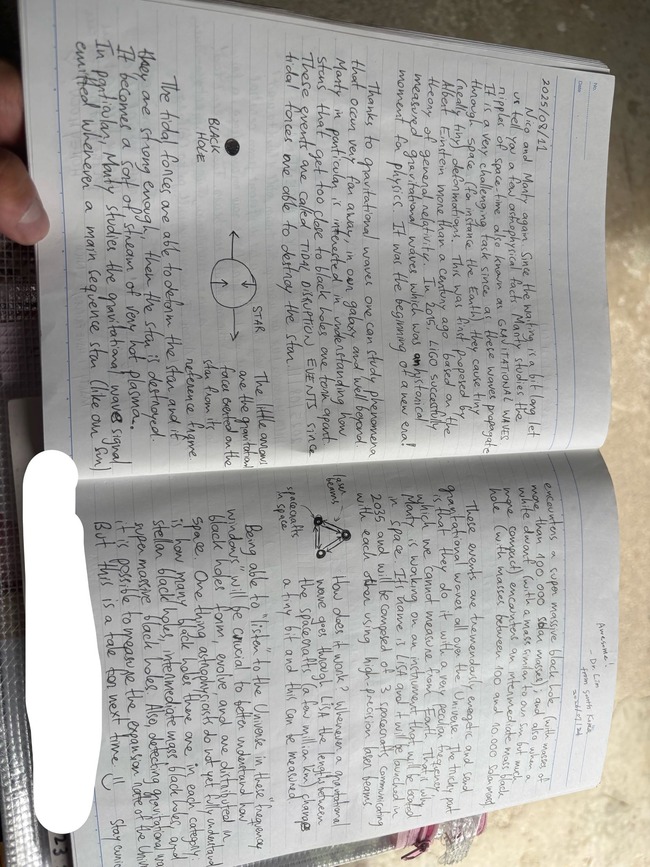 2025/08/11
Nico and Marty again. Since the waiting is a bit long let
us tell you a few astrophysical facts. Marty studies the
ripples of space-time also known as GRAVITATIONAL WAVES
It is a very challenging task since as these waves propagate
through space (for instance the Earth) they cause tiny
(really tiny) deformations. This was first proposed by
Albert Einstein more than a century ago based on the
theory of general relativity. In 2015, LIGO successfully
measured gravitational waves which was an hystorical
moment for physics. It was the beginning of a new era!
Thanks to gravitational waves one can study phenomena
that occur very far away, in our galaxy and well beyond.
Marty in particular is interested in understanding how
stars that get too close to black holes are torn apart.
These events are called TIDAL DISRUPTION EVENTS since
tidal forces are able to destroy the star.
BLACK
HOLE
STAR
The little arrows
are the gravitational
force exerted on the
star from its
reference frame
The tidal forces are able to deform the star and if
they are strong enough, then the star is destroyed.
It becomes a sort of stream of very hot plasma.
In particular, Marty studies the gravitational waves signal
emitted whenever a main sequence star (like our Sun)
Awesome!
- Dr. Lin
from South Korea
encounters a super massive black hole (with masses of
more than 100 000 solar masses) and also when a
white dwarf (with a mass similar to our Sun but much
more compact) encounters an intermediate mass black
hole (with masses between 100 and 10.000 solar masses)
These events are tremendously energetic and send
gravitational waves all over the Universe. The tricky part
is that they do it with a very peculiar frequency
which we cannot measure from Earth. That is why
Marty is working on an instrument that will be located
in space. It name is LISA and it will be launched in
2035 and will be composed of 3 spacecrafts communicating
with each other using high-precision laser beams
laser
beams
spacecrafts
in space
How does it work? Whenever a gravitational
wave goes through LISA the length between
the spacecrafts (a few million km) change
a tiny bit and this can be measured
Being able to "listen" to the Universe in these "frequency
windows" will be crucial to better understand how
black holes form, evolve and are distributed in
space. One thing astrophysicists do not yet fully understand
is how many black holes there are in each category:
stellar black holes, intermediate mass black holes, and
super massive black holes. Also, detecting gravitational
it is possible to measure the expansion rate of the
But this is a tale for next time! :)
stay
23